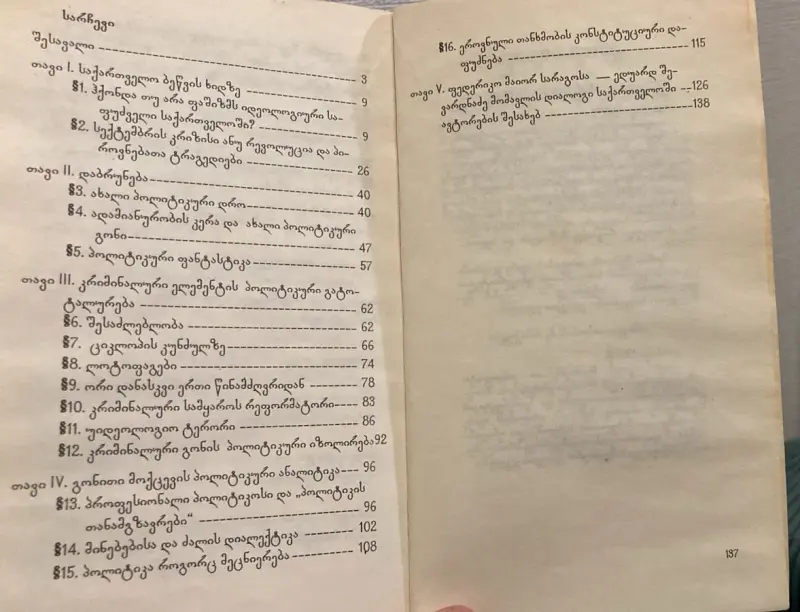 სარჩევი
შესავალი ---------- 3
თავი I. საქართველო ბეწვის ხიდზე ---------- 9
§1. ჰქონდა თუ არა ფაშიზმს იდეოლოგიური სა-
ფუძველი საქართველოში? ---------- 9
§2. სექტემბრის კრიზისი ანუ რევოლუცია და პი-
როვნებათა ტრაგედიები ---------- 26
თავი II. დაბრუნება ---------- 40
§3. ახალი პოლიტიკური დრო ---------- 40
§4. ადამიანურობის კერა და ახალი პოლიტიკური
გონი ---------- 47
§5. პოლიტიკური ფანტასტიკა ---------- 57
თავი III. კრიმინალური ელემენტის პოლიტიკური გატო-
ტალურება ---------- 62
§6. შესაძლებლობა ---------- 62
§7. ციკლოპის კუნძულზე ---------- 66
§8. ლოტოფაგები ---------- 74
§9. ორი დანასკვი ერთი წინამძღვრიდან ---------- 78
§10. კრიმინალური სამყაროს რეფორმატორი ---------- 83
§11. უიდეოლოგიო ტერორი ---------- 86
§12. კრიმინალური გონის პოლიტიკური იზოლირება 92
თავი IV. გონითი მოქცევის პოლიტიკური ანალიტიკა --- 96
§13. პროფესიონალი პოლიტიკოსი და „პოლიტიკის
თანამგზავრები“ ---------- 96
§14. მინებებისა და ძალის დიალექტიკა ---------- 102
§15. პოლიტიკა როგორც მეცნიერება ---------- 108
§16. ეროვნული თანხმობის კონსტიტუციური და-
ფუძნება ---------- 115
თავი V. ფედერიკო მაიორ სარაგოსა — ედუარდ შე-
ვარდნაძე მომავლის დიალოგი საქართველოში -- 126
ავტორების შესახებ ---------- 138
137